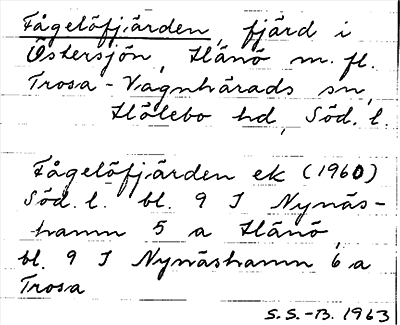 Fågelöfjärden, fjärd i
Östersjön, Hånö m. fl.
Trosa-Vagnhärads sn,
Hölebo hd, Söd. l.
Fågelöfjärden ek (1960)
Söd. l. bl. 9 I Nynäs-
hamn 5 a Hånö,
bl. 9 I Nynäshamn 6 a
Trosa
S.S.-B. 1963